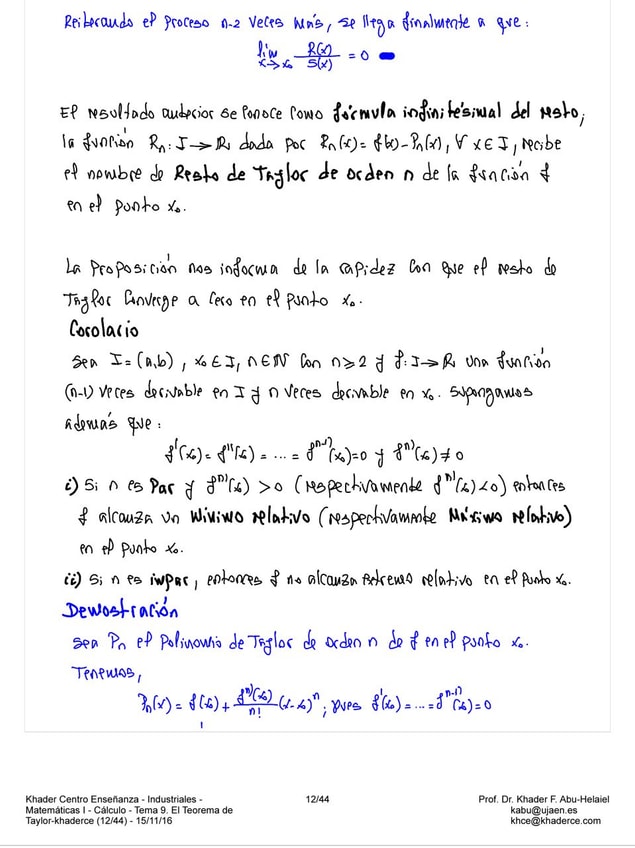 Reiterando el proceso n-2 veces más, se llega finalmente a que:
lim x→x₀ R(x)/S(x) = 0
El resultado anterior se conoce como fórmula infinitesimal del resto;
la función Rn: I→ℝ dada por Rn(x)= f(x)-Pn(x), ∀ x∈I, recibe
el nombre de Resto de Taylor de orden n de la función f
en el punto x₀.
La proposición nos informa de la rapidez con que el resto de
Taylor converge a cero en el punto x₀.
Corolario
Sea I=(a,b), x₀∈I, n∈ℕ con n≥2 y f: I→ℝ una función
(n-1) veces derivable en I y n veces derivable en x₀. Supongamos
además que:
f'(x₀)= f''(x₀) = ... = fⁿ⁻¹⁾(x₀)=0 y fⁿ⁾(x₀) ≠ 0
i) Si n es Par y fⁿ⁾(x₀) >0 (respectivamente fⁿ⁾(x₀)<0) entonces
f alcanza un Mínimo relativo (respectivamente Máximo relativo)
en el punto x₀.
ii) Si n es impar, entonces f no alcanza extremo relativo en el punto x₀.
Demostración
Sea Pn el Polinomio de Taylor de orden n de f en el punto x₀.
Tenemos,
Pn(x) = f(x₀) + fⁿ⁾(x₀)/n! (x-x₀)ⁿ; pues f'(x₀) = ... = fⁿ⁻¹⁾(x₀)=0
Khader Centro Enseñanza - Industriales -
Matemáticas I - Cálculo - Tema 9. El Teorema de
Taylor-khaderce (12/44) - 15/11/16
12/44
Prof. Dr. Khader F. Abu-Helaiel
kabu@ujaen.es
khce@khaderce.com